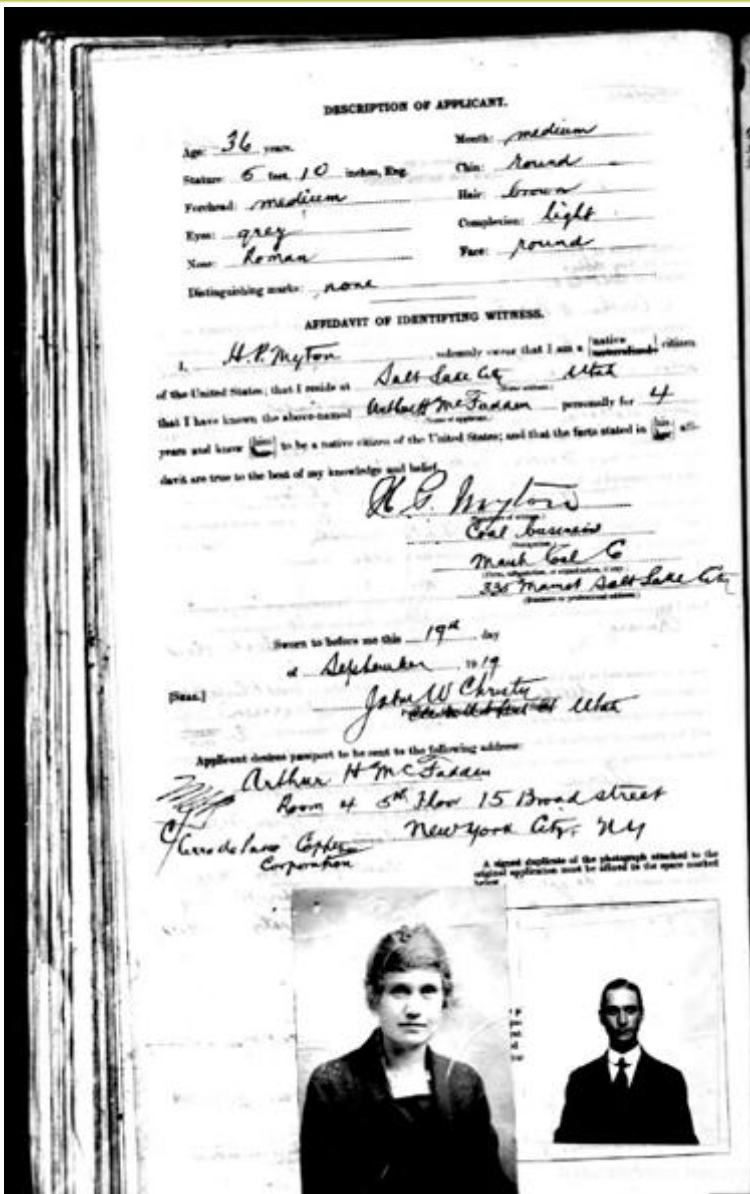 DESCRIPTION OF APPLICANT.
Age: 36 years. Mouth: medium
Stature: 5 feet, 10 inches, Eng. Chin: round
Forehead: medium Hair: brown
Eyes: grey Complexion: light
Nose: Roman Face: round
Distinguishing marks: none
AFFIDAVIT OF IDENTIFYING WITNESS.
I, H.P. Myton, solemnly swear that I am a [native] citizen
of the United States; that I reside at Salt Lake City Utah
that I have known the above-named Arthur H McFadden personally for 4
years and know [him] to be a native citizen of the United States; and that the facts stated in [his] affi-
davit are true to the best of my knowledge and belief.
Myton
Coal business
(Occupation.)
Coal Co
(Firm, organization, or corporation, if any.)
Salt Lake City
(Business or professional address.)
Sworn to before me this 19th day
of September, 1919
[SEAL.] John W Christy
Utah
Applicant desires passport to be sent to the following address:
Arthur H McFadden
Room 4 5th Floor 15 Broad street
Cerro de Pasco Copper New York City, NY
Corporation
A signed duplicate of the photograph attached to the
original application must be affixed in the space marked
below